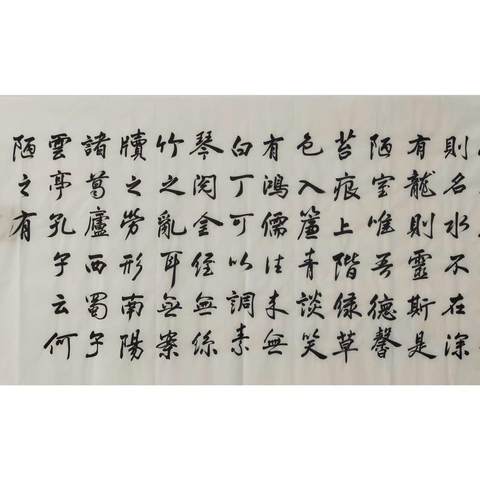 則名水不在深
有龍則靈斯是
陋室唯吾德馨
苔痕上階绿草
色入簾青談笑
有鴻儒往来無
白丁可以調素
琴閱金经無絲
竹之亂耳無案
牘之勞形南陽
諸葛廬西蜀子
雲亭孔子云何
陋之有